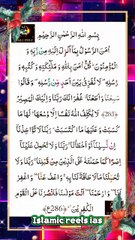 بِسْمِ اللهِ الرَّحْمٰنِ الرَّحِيْمِ
اٰمَنَ الرَّسُوْلُ بِمَاۤ اُنْزِلَ اِلَيْهِ مِنْ رَّبِّهٖ وَ
الْمُؤْمِنُوْنَ ؕ كُلٌّ اٰمَنَ بِاللّٰهِ وَمَلٰٓئِكَتِهٖ وَكُتُبِهٖ وَ
رُسُلِهٖ ۟ لَا نُفَرِّقُ بَيْنَ اَحَدٍ مِّنْ رُّسُلِهٖ ۟ وَقَالُوْا
سَمِعْنَا وَاَطَعْنَا غُفْرَانَكَ رَبَّنَا وَاِلَيْكَ الْمَصِيْرُ
﴿285﴾ لَا يُكَلِّفُ اللّٰهُ نَفْسًا اِلَّا وُسْعَهَا ؕ لَهَا مَا
كَسَبَتْ وَعَلَيْهَا مَا اكْتَسَبَتْ ؕ رَبَّنَا لَا تُؤَاخِذْنَاۤ
اِنْ نَّسِيْنَاۤ اَوْ اَخْطَاْنَا ۚ رَبَّنَا وَلَا تَحْمِلْ عَلَيْنَاۤ
اِصْرًا كَمَا حَمَلْتَهٗ عَلَى الَّذِيْنَ مِنْ قَبْلِنَا ۚ رَبَّنَا وَلَا
تُحَمِّلْنَا مَا لَا طَاقَةَ لَنَا بِهٖ ۚ وَاعْفُ عَنَّا ۟ وَاغْفِرْ
لَنَا ۟ وَارْحَمْنَا ۟ اَنْتَ مَوْلٰىنَا فَانْصُرْنَا عَلَى الْقَوْمِ
الْكٰفِرِيْنَ ﴿286﴾ ع
Islamic reels ias